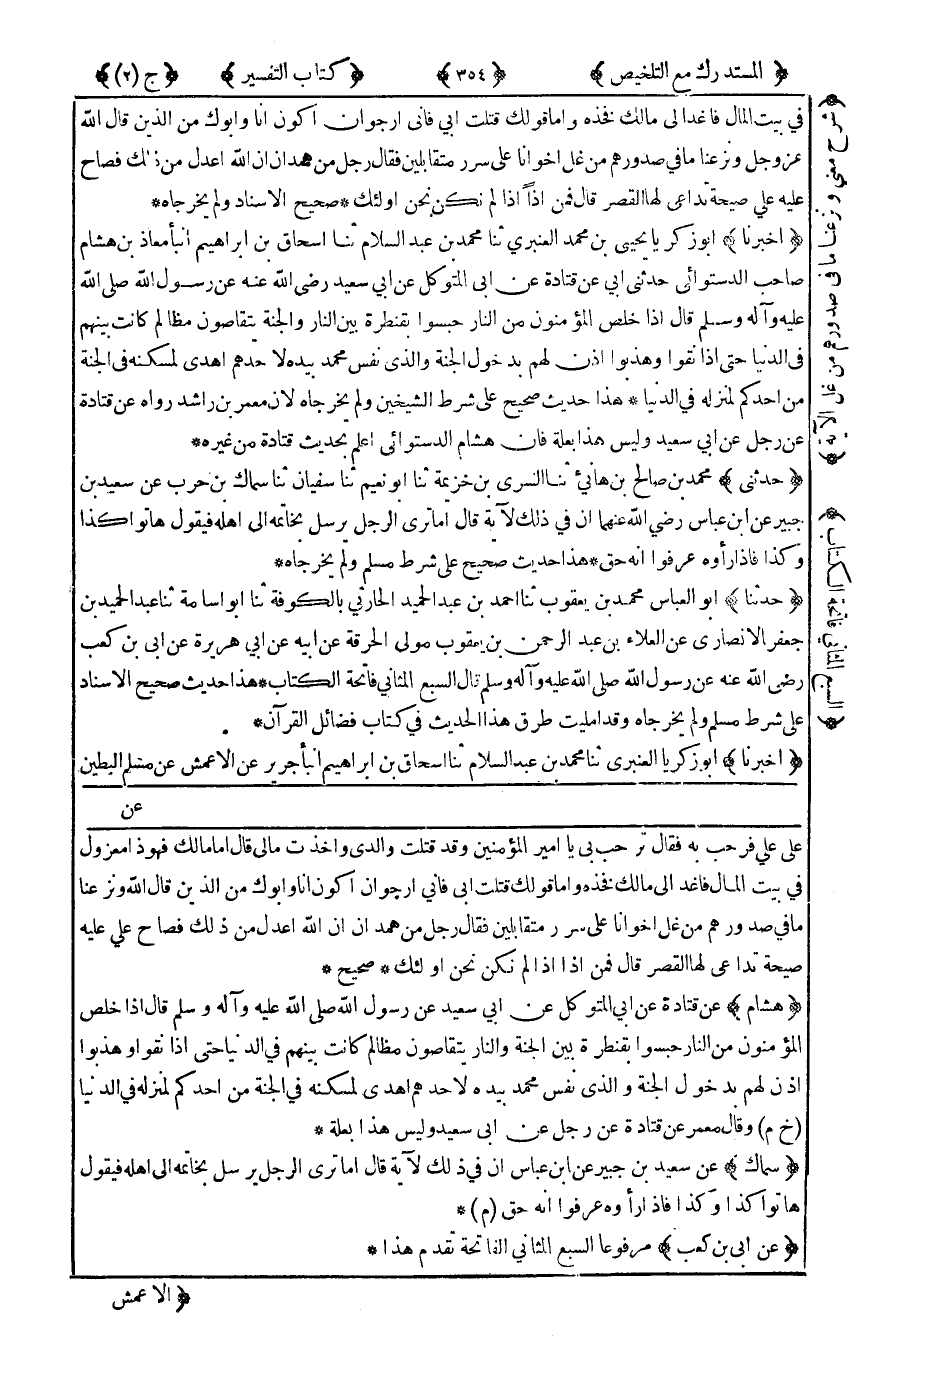 ﴿ المستدرك مع التلخيص ﴾ ﴿ ٣٥٤ ﴾ ﴿ كتاب التفسير ﴾ ﴿ ج (٢) ﴾
في بيت المال فاغد الى مالك فخذه واما قولك قتلت ابي فاني ارجو ان اكون انا وابوك من الذين قال الله
عز وجل ونزعنا ما في صدورهم من غل اخوانا على سرر متقابلين فقال رجل من همدان ان الله اعدل من ذلك فصاح
عليه علي صيحة تداعى لها القصر قال فمن اذاً اذا لم نكن نحن اولئك * صحيح الاسناد ولم يخرجاه *
﴿ اخبرنا ﴾ ابو زكريا يحيى بن محمد العنبري ثنا محمد بن عبد السلام ثنا اسحاق بن ابراهيم انبأ معاذ بن هشام
صاحب الدستوائي حدثني ابي عن قتادة عن ابي المتوكل عن ابي سعيد رضى الله عنه عن رسول الله صلى الله
عليه وآله وسلم قال اذا خلص المؤمنون من النار حبسوا بقنطرة بين النار والجنة يتقاصون مظالم كانت بينهم
في الدنيا حتى اذا نقوا وهذبوا اذن لهم بدخول الجنة والذى نفس محمد بيده لا حدهم اهدى لمسكنه في الجنة
من احدكم لمنزله في الدنيا * هذا حديث صحيح على شرط الشيخين ولم يخرجاه لان معمر بن راشد رواه عن قتادة
عن رجل عن ابي سعيد وليس هذا بعلة فان هشام الدستوائي اعلم بحديث قتادة من غيره *
﴿ حدثنى ﴾ محمد بن صالح بن هانئ ثنا السرى بن خزيمة ثنا ابو نعيم ثنا سفيان ثنا سماك بن حرب عن سعيد بن
جبير عن ابن عباس رضي الله عنهما ان في ذلك لآية قال اما ترى الرجل يرسل بخاتمه الى اهله فيقول هاتوا كذا
وكذا فاذا رأوه عرفوا انه حق * هذا حديث صحيح على شرط مسلم ولم يخرجاه *
﴿ حدثنا ﴾ ابو العباس محمد بن يعقوب ثنا احمد بن عبد الحميد الحارثي بالكوفة ثنا ابو اسامة ثنا عبد الحميد بن
جعفر الانصارى عن العلاء بن عبد الرحمن بن يعقوب مولى الحرقة عن ابيه عن ابي هريرة عن ابى بن كعب
رضى الله عنه عن رسول الله صلى الله عليه وآله وسلم قال السبع المثاني فاتحة الكتاب * هذا حديث صحيح الاسناد
على شرط مسلم ولم يخرجاه وقد امليت طرق هذا الحديث في كتاب فضائل القرآن *
﴿ اخبرنا ﴾ ابو زكريا العنبرى ثنا محمد بن عبد السلام ثنا اسحاق بن ابراهيم انبأ جرير عن الاعمش عن مسلم البطين
عن
على علي فرحب به فقال ترحب بى يا امير المؤمنين وقد قتلت والدى واخذت مالى قال اما مالك فهو ذا معزول
في بيت المال فاغد الى مالك فخذه واما قولك قتلت ابى فاني ارجو ان اكون انا وابوك من الذين قال الله ونزعنا
ما في صدورهم من غل اخوانا على سرر متقابلين فقال رجل من همدان ان الله اعدل من ذلك فصاح علي عليه
صيحة تداعى لها القصر قال فمن اذا اذا لم نكن نحن اولئك * صحيح *
﴿ هشام ﴾ عن قتادة عن ابي المتوكل عن ابي سعيد عن رسول الله صلى الله عليه وآله وسلم قال اذا خلص
المؤمنون من النار حبسوا بقنطرة بين الجنة والنار يتقاصون مظالم كانت بينهم في الدنيا حتى اذا نقوا وهذبوا
اذن لهم بدخول الجنة والذى نفس محمد بيده لاحدهم اهدى لمسكنه في الجنة من احدكم لمنزله في الدنيا
(خ م) وقال معمر عن قتادة عن رجل عن ابى سعيد وليس هذا بعلة *
﴿ سماك ﴾ عن سعيد بن جبير عن ابن عباس ان في ذلك لآية قال اما ترى الرجل يرسل بخاتمه الى اهله فيقول
هاتوا كذا وكذا فاذا رأوه عرفوا انه حق (م) *
﴿ عن ابى بن كعب ﴾ مرفوعا السبع المثاني الفاتحة تقدم هذا *
﴿ الاعمش
﴿ شرح معنى ونزعنا ما في صدورهم من غل الآية ﴾
﴿ السبع المثاني فاتحة الكتاب ﴾